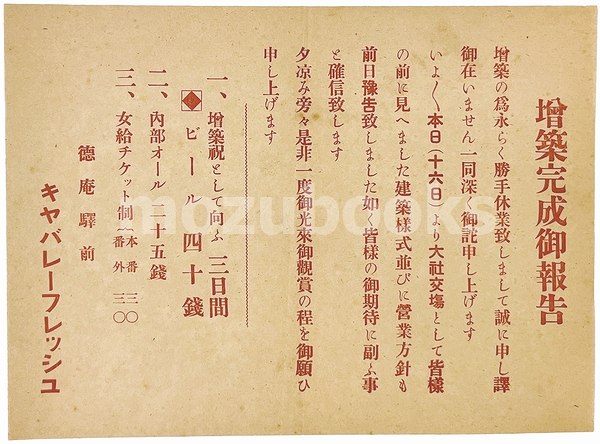 增築完成御報告
增築の爲永らく勝手休業致しまして誠に申し譯
御在いません一同深く御詫申し上げます
いよ〱本日(十六日)より大社交場として皆樣
の前に見へました建築樣式並びに營業方針も
前日豫吿致しました如く皆樣の御期待に副ふ事
と確信致します
夕凉み旁々是非一度御光來御觀賞の程を御願ひ
申し上げます
一、增築祝として向ふ三日間
ビール四十錢
二、內部オール二十五錢
三、女給チケット制 本番 三〇
番外 三〇
德庵驛前
キヤバレーフレッシユ
mozubooks